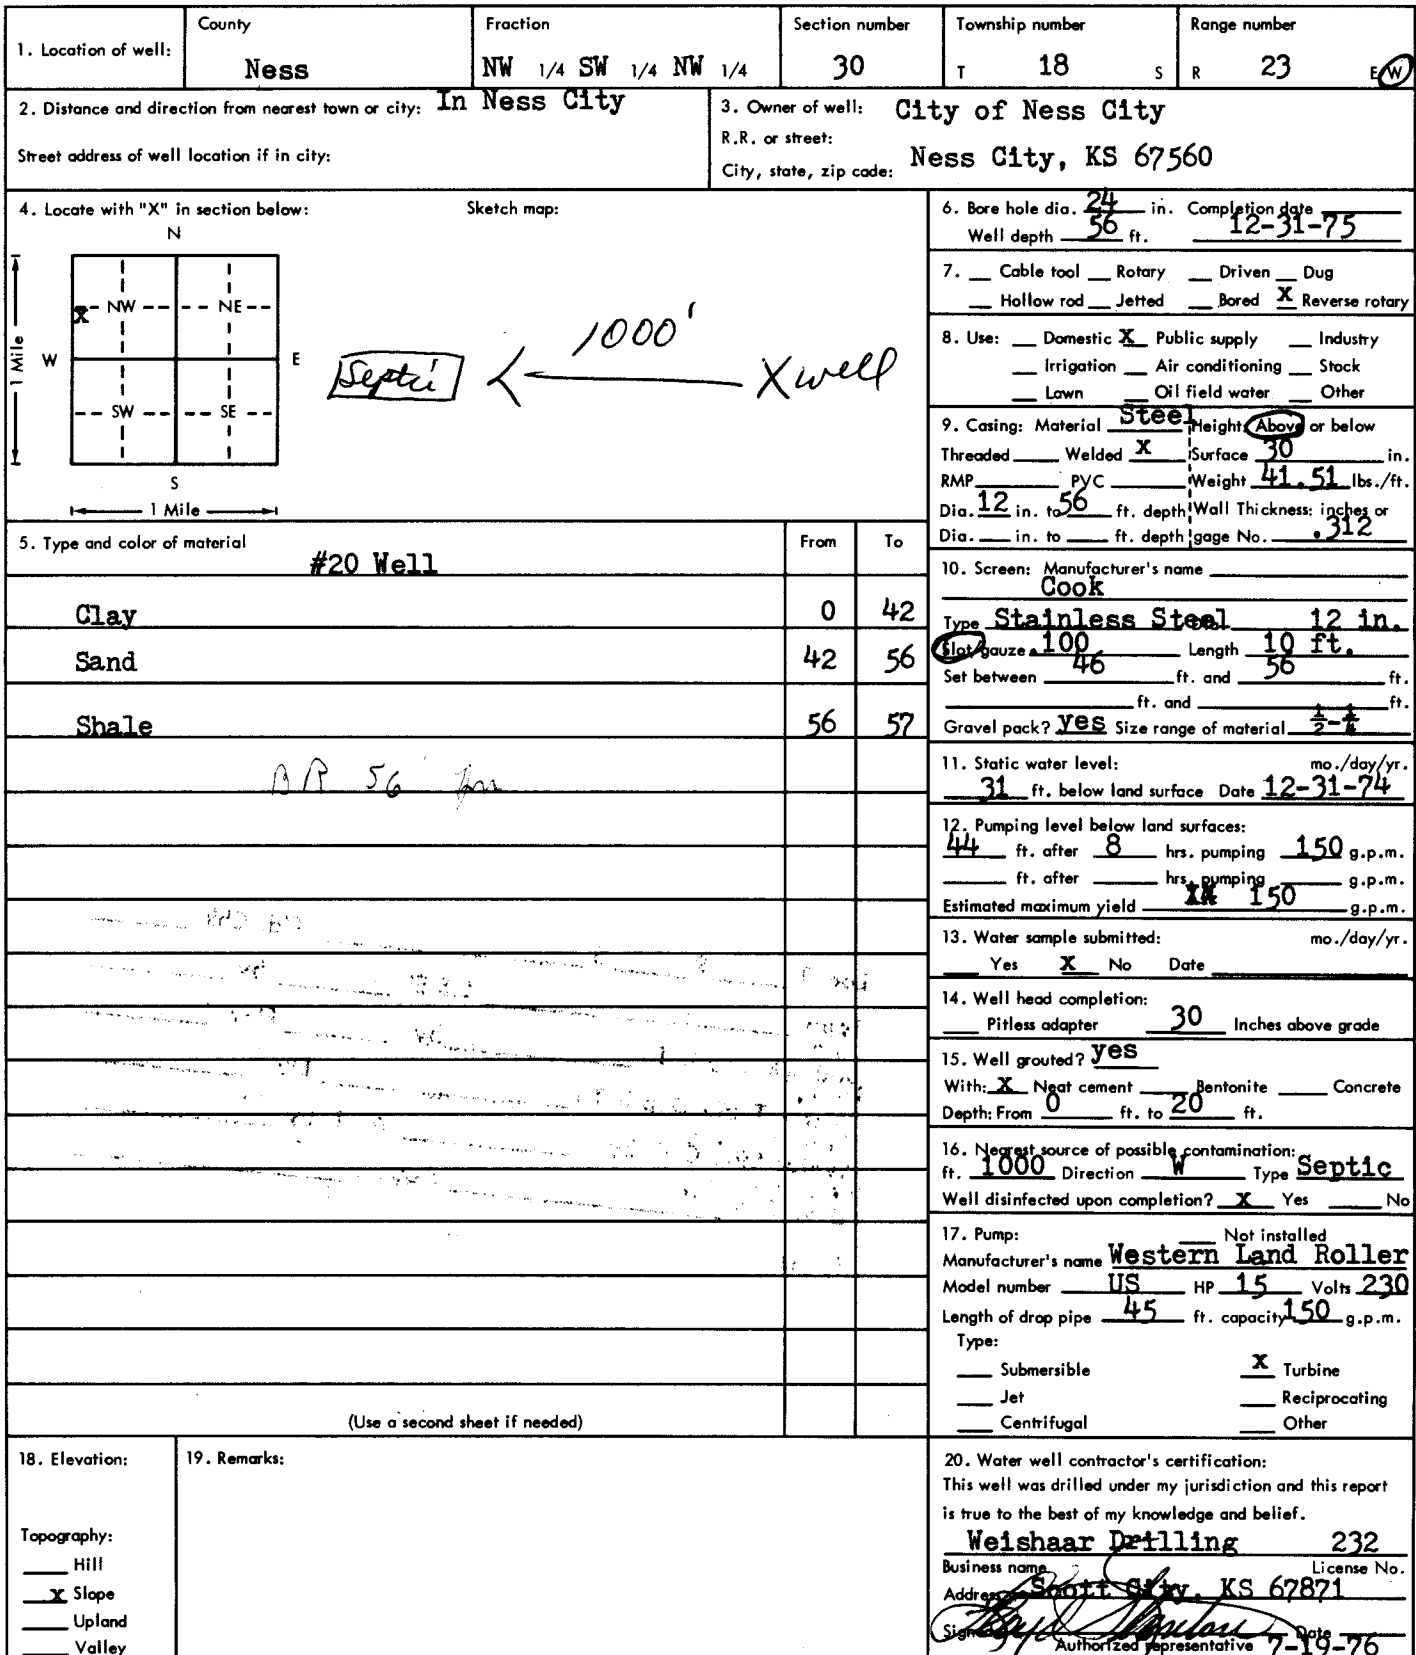 1. Location of well: County Ness Fraction NW 1/4 SW 1/4 NW 1/4 Section number 30 Township number T 18 S Range number R 23 E W
2. Distance and direction from nearest town or city: In Ness City
Street address of well location if in city:
3. Owner of well: City of Ness City
R.R. or street:
City, state, zip code: Ness City, KS 67560
4. Locate with "X" in section below: Sketch map:
N
1 Mile
X NW NE
W E
SW SE
S
1 Mile
Septic 1000' X well
5. Type and color of material From To
#20 Well
Clay 0 42
Sand 42 56
Shale 56 57
BR 56'
(Use a second sheet if needed)
6. Bore hole dia. 24 in. Completion date
Well depth 56 ft. 12-31-75
7. __ Cable tool __ Rotary __ Driven __ Dug
__ Hollow rod __ Jetted __ Bored X Reverse rotary
8. Use: __ Domestic X Public supply __ Industry
__ Irrigation __ Air conditioning __ Stock
__ Lawn __ Oil field water __ Other
9. Casing: Material Steel Height: Above or below
Threaded __ Welded X Surface 30 in.
RMP __ PVC __ Weight 41.51 lbs./ft.
Dia. 12 in. to 56 ft. depth Wall Thickness: inches or
Dia. __ in. to __ ft. depth gage No. .312
10. Screen: Manufacturer's name
Cook
Type Stainless Steel 12 in.
Slot/gauze .100 Length 10 ft.
Set between 46 ft. and 56 ft.
__ ft. and __ ft.
Gravel pack? yes Size range of material 1/2-1/4
11. Static water level: mo./day/yr.
31 ft. below land surface Date 12-31-74
12. Pumping level below land surfaces:
44 ft. after 8 hrs. pumping 150 g.p.m.
__ ft. after __ hrs. pumping __ g.p.m.
Estimated maximum yield 150 g.p.m.
13. Water sample submitted: mo./day/yr.
__ Yes X No Date __
14. Well head completion:
__ Pitless adapter 30 Inches above grade
15. Well grouted? yes
With: X Neat cement __ Bentonite __ Concrete
Depth: From 0 ft. to 20 ft.
16. Nearest source of possible contamination:
ft. 1000 Direction W Type Septic
Well disinfected upon completion? X Yes __ No
17. Pump: __ Not installed
Manufacturer's name Western Land Roller
Model number US HP 15 Volts 230
Length of drop pipe 45 ft. capacity 150 g.p.m.
Type:
__ Submersible X Turbine
__ Jet __ Reciprocating
__ Centrifugal __ Other
18. Elevation:
Topography:
__ Hill
X Slope
__ Upland
__ Valley
19. Remarks:
20. Water well contractor's certification:
This well was drilled under my jurisdiction and this report
is true to the best of my knowledge and belief.
Weishaar Drilling 232
Business name License No.
Address Scott City, KS 67871
Signed Date
Authorized representative 7-19-76